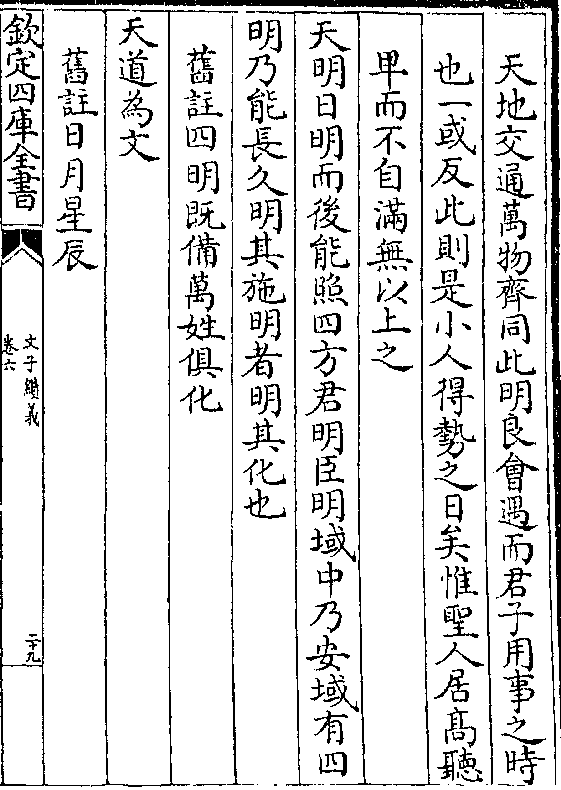 天地交通萬物齊同此明良會遇而君子用事之時
也一或反此則是小人得勢之日矣惟聖人居髙聽
卑而不自滿無以上之
天明日明而後能照四方君明臣明域中乃安域有四
明乃能長久明其施明者明其化也
舊註四明既備萬姓俱化
天道為文
舊註日月星辰
欽定四庫全書
文子纘義
卷六
二十九